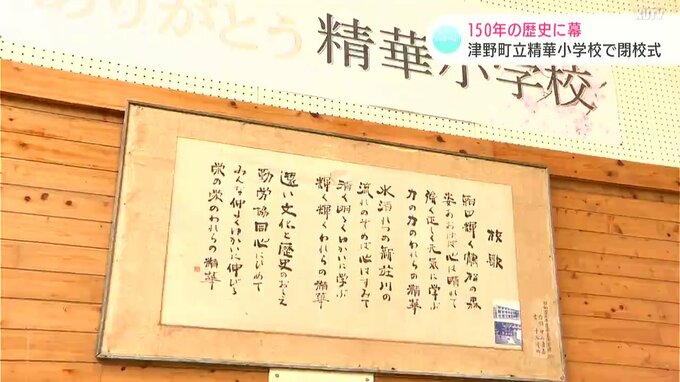 KUTV
150年の歴史に幕
津野町立精華小学校で閉校式
ありがとう
精華小学校
校歌
姿あおげば心は晴れて
強く正しく元気に学ぶ
力の力のわれらの精華
水清れつの新荘川の
流れのぞめば心はすみて
清く明るくゆかいに学ぶ
輝く輝くわれらの精華
遠い文化と歴史のおしえ
勤労協同心にひめて
みんな仲よくゆかいに伸びる
栄の栄のわれらの精華